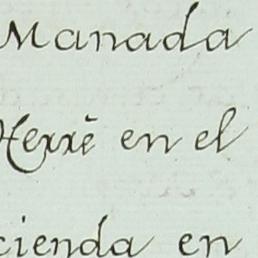 Manada
Herrè en el
cienda en